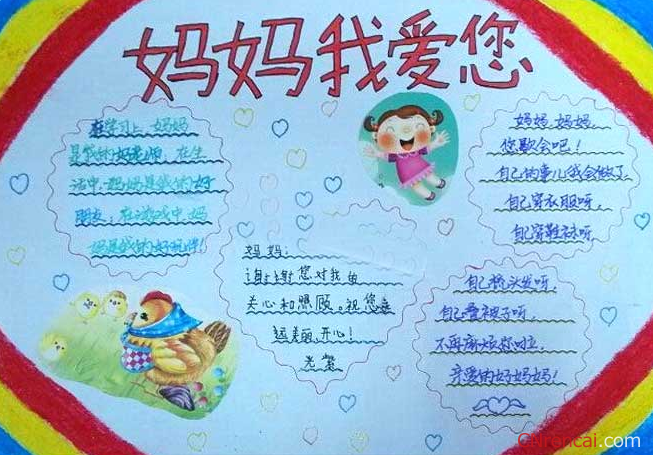 妈妈我爱您
在学习上,妈妈
是我的好老师,在生
活中,妈妈是我的好
朋友,在游戏中,妈
妈是我的好玩伴!
妈妈:
谢谢您对我的
关心和照顾,祝您永
远美丽,开心!
妈妈,妈妈,
您歇会吧!
自己的事儿我会做了,
自己穿衣服呀,
自己穿鞋袜呀,
自己梳头发呀,
自己叠被子呀,
不再麻烦您啦,
亲爱的好妈妈!